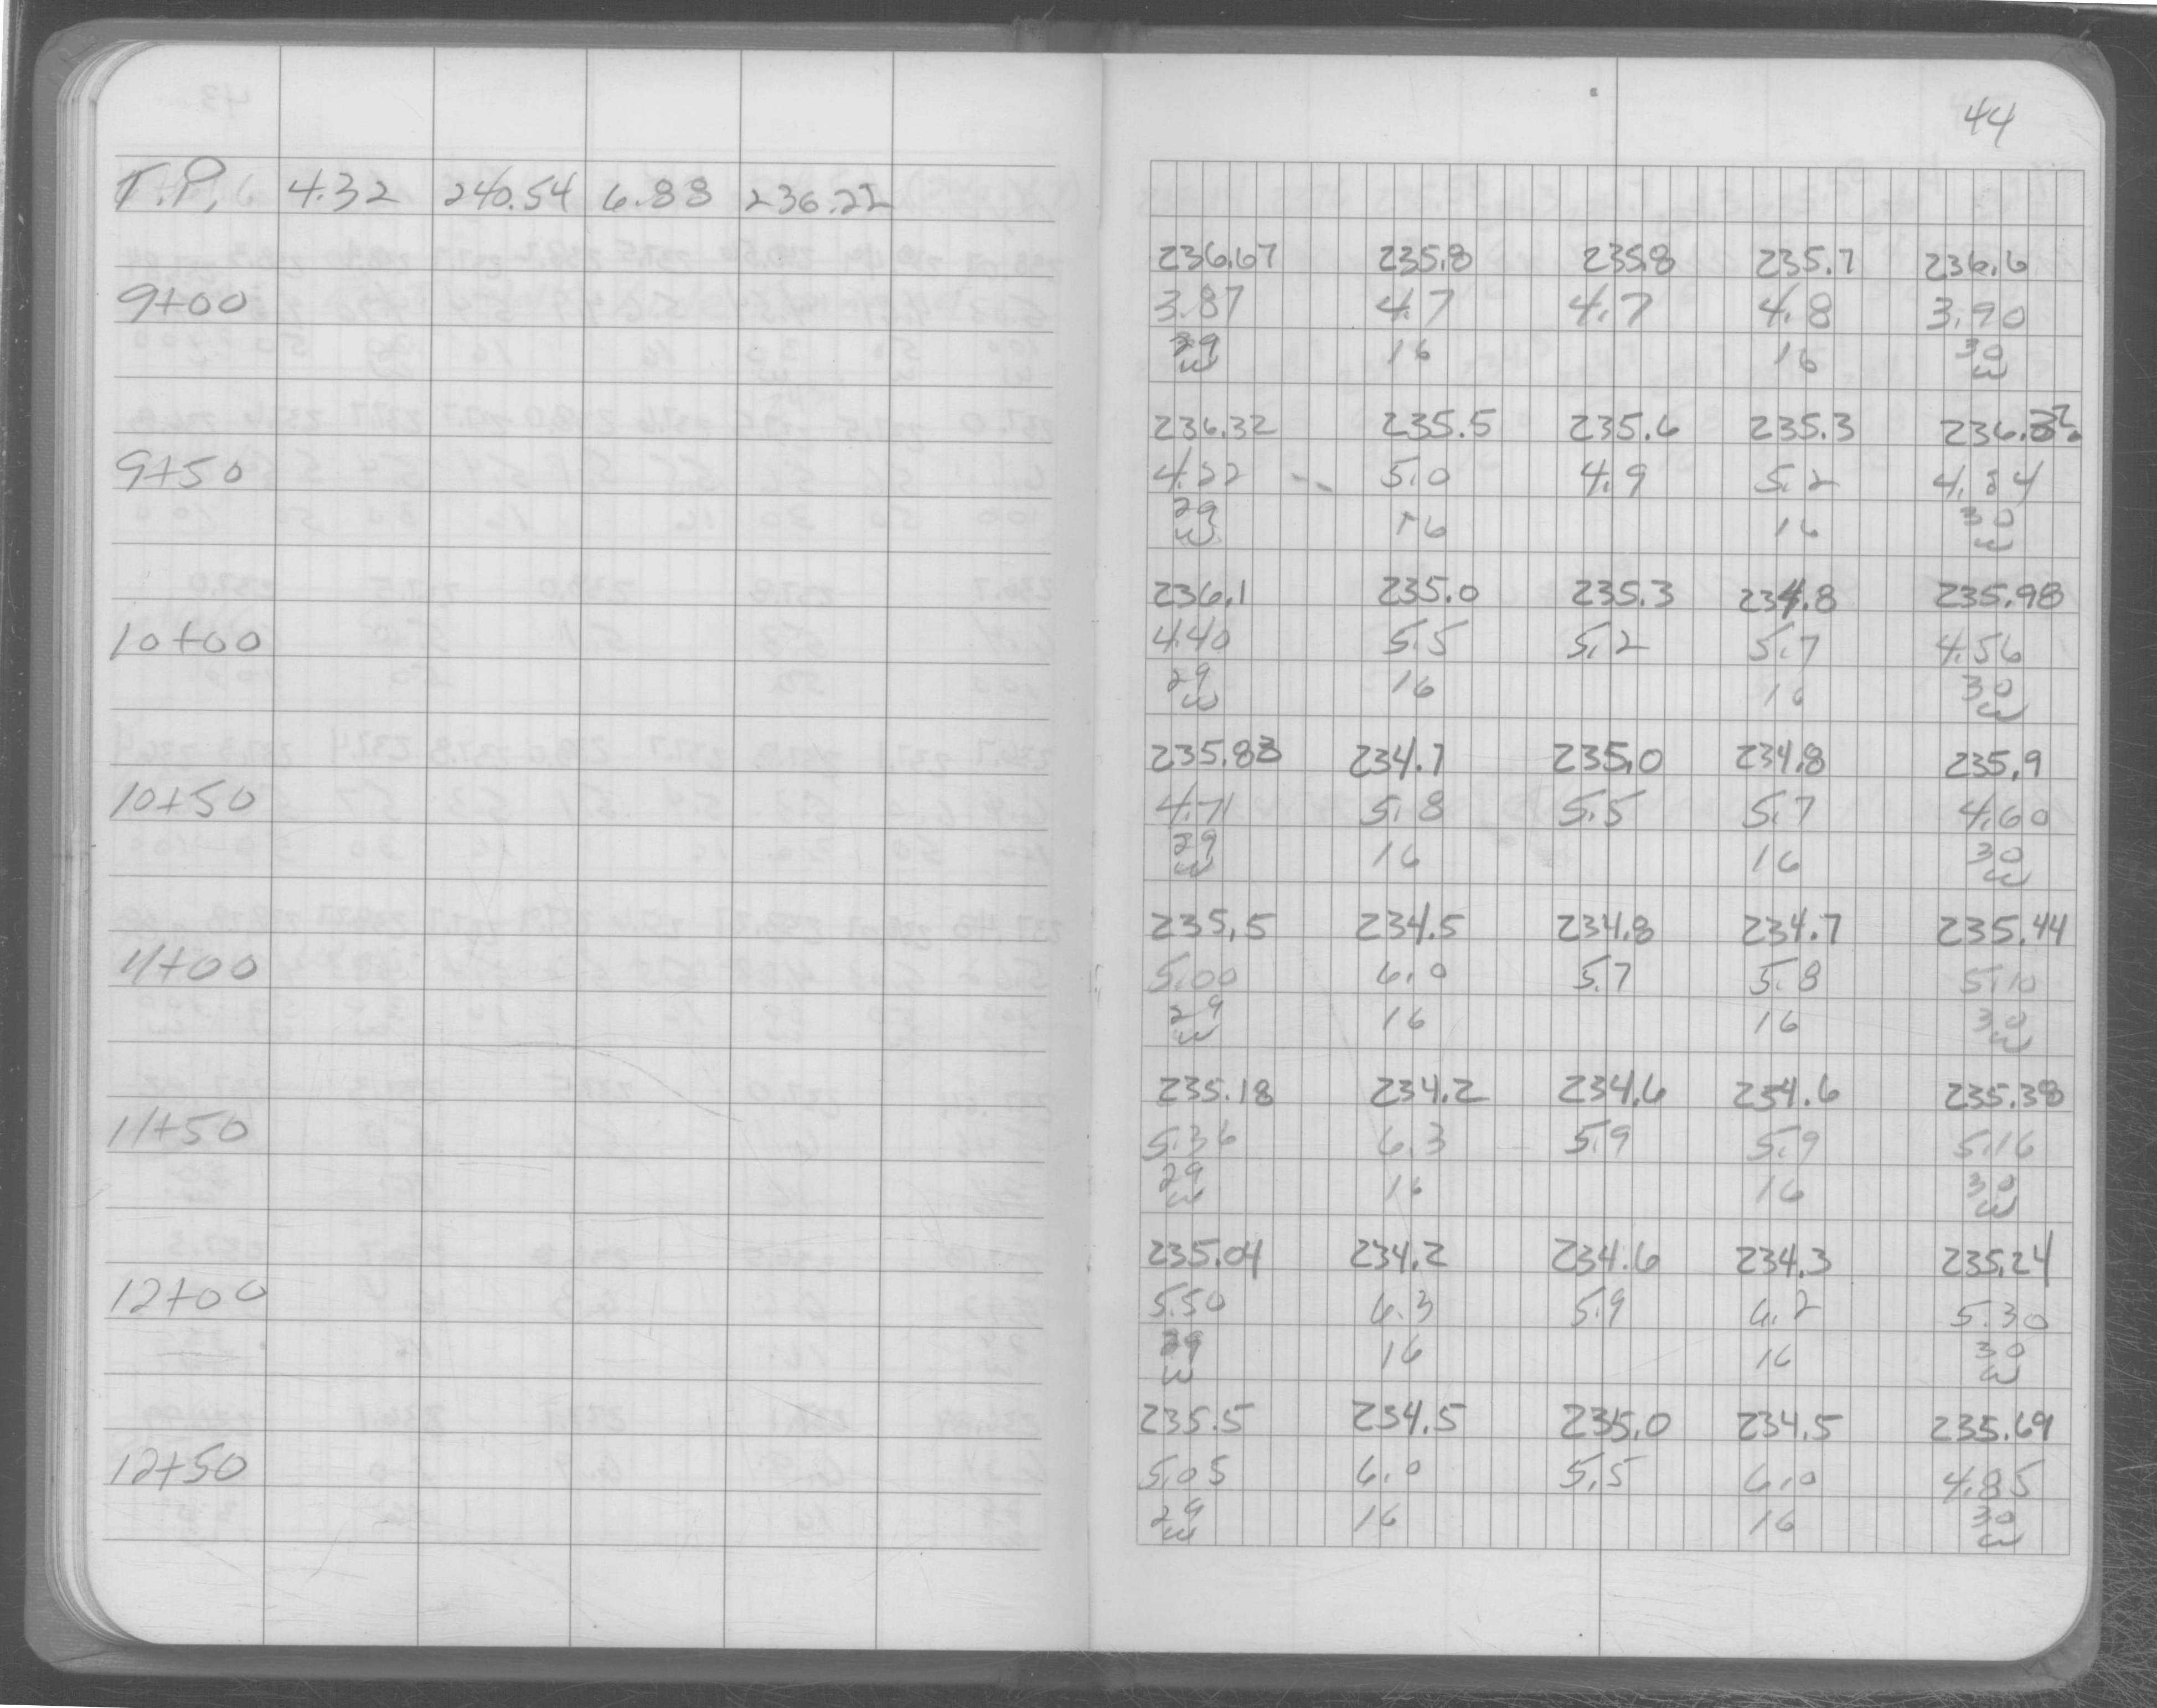 44
T.P. 4.32 240.54 6.88 236.22
236.67 235.8 235.8 235.7 236.6
9+00 3.87 4.7 4.7 4.8 3.90
29 16 16 30
W W
236.32 235.5 235.6 235.3
9+50 4.22 5.0 4.9 5.2
29 16 16 30
W W
236.1 235.0 235.3 234.8 235.98
10+00 4.40 5.5 5.2 5.7 4.56
29 16 16 30
W W
235.83 234.7 235.0 234.8 235.9
10+50 4.71 5.8 5.5 5.7 4.60
29 16 16 30
W W
235.5 234.5 234.8 234.7 235.44
11+00 5.00 6.0 5.7 5.8 5.10
29 16 16 30
W W
235.18 234.2 234.6 234.6 235.38
11+50 5.36 6.3 5.9 5.9 5.16
29 16 16 30
W W
235.04 234.2 234.6 234.3 235.24
12+00 5.50 6.3 5.9 6.2 5.30
29 16 16 30
W W
235.5 234.5 235.0 234.5 235.69
12+50 5.05 6.0 5.5 6.0 4.85
29 16 16 30
W W